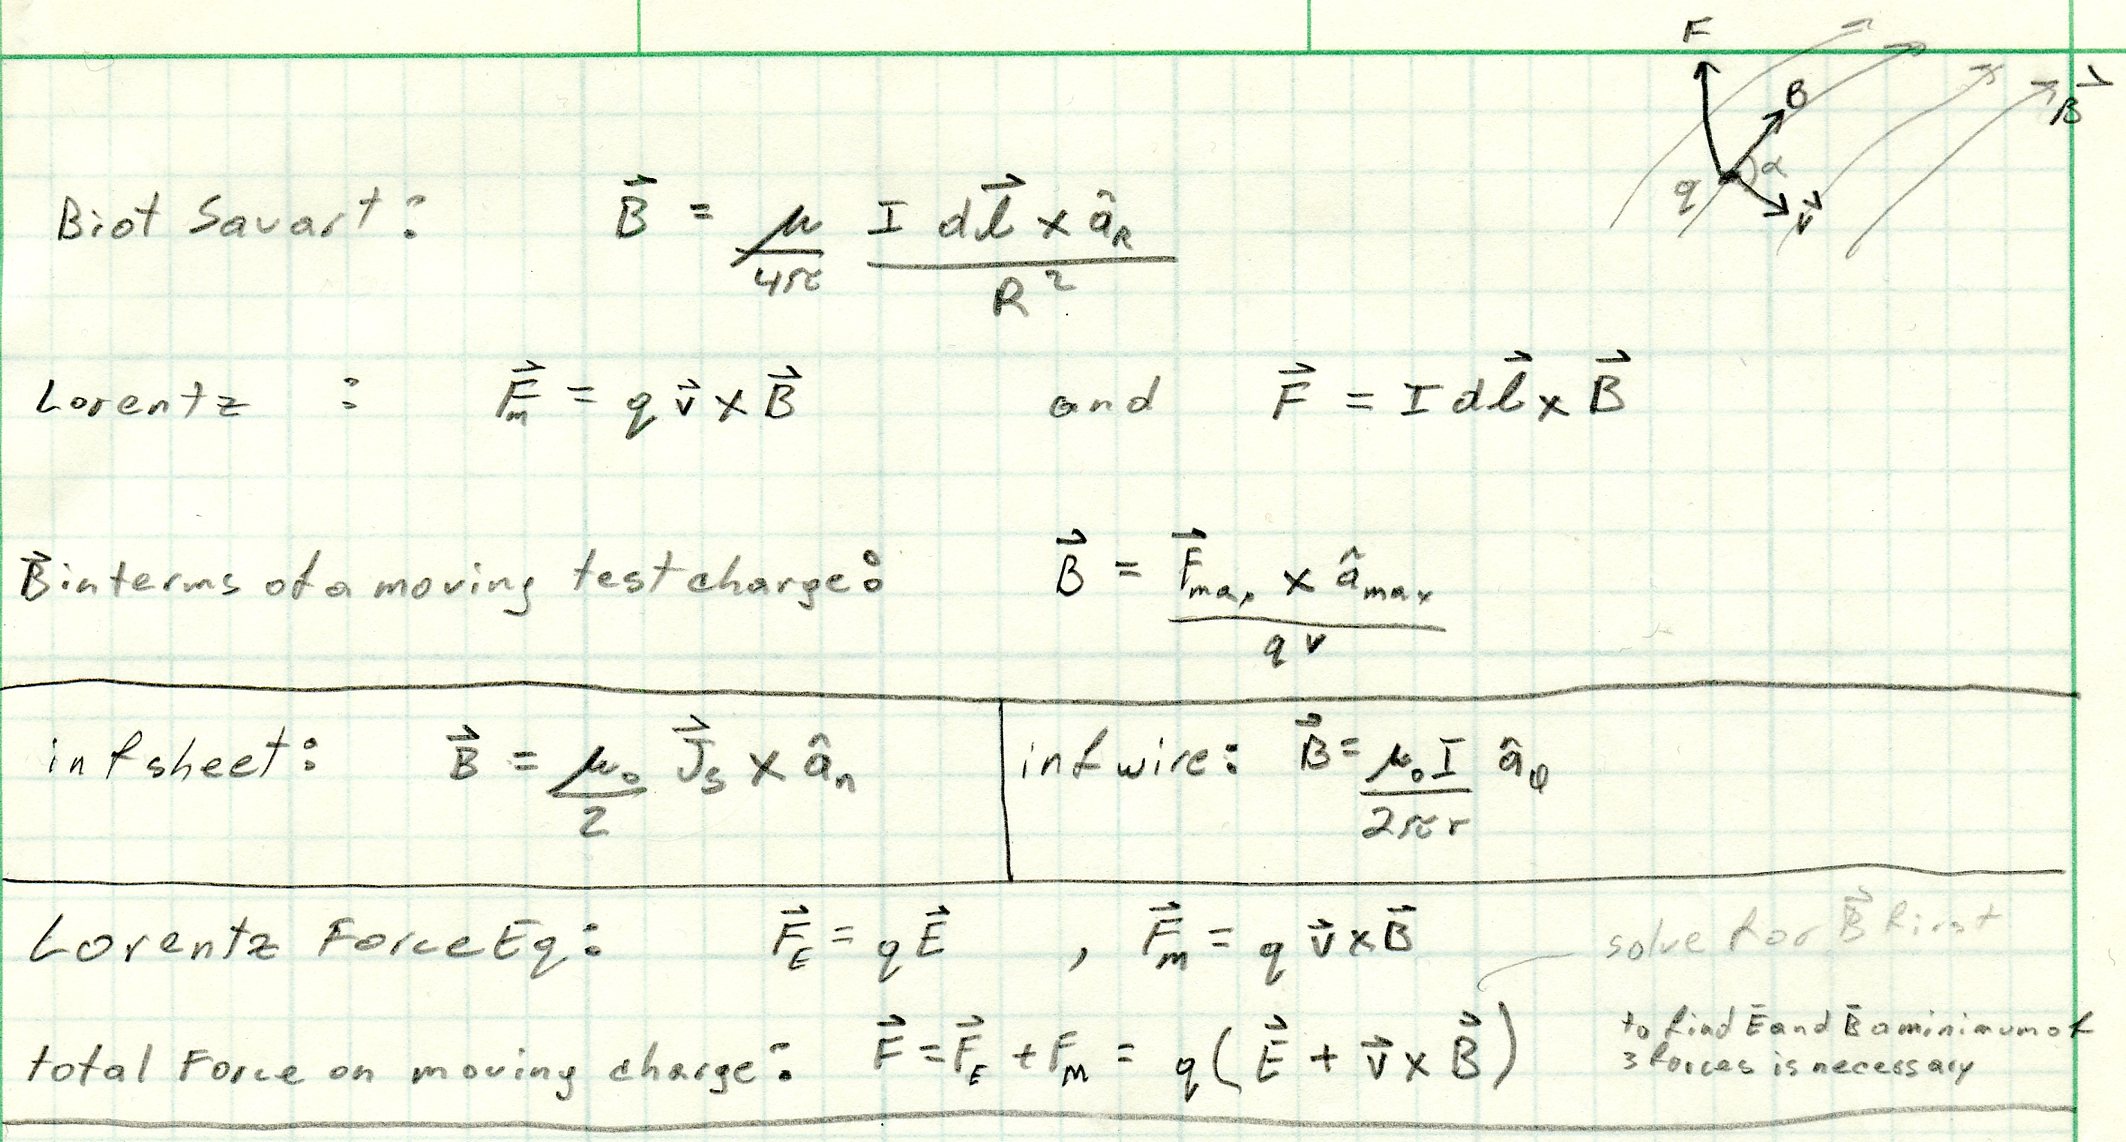 F
B
B⃗
α
q
v⃗
Biot Savart: B⃗ = μ/4π I dl⃗ × â_R / R²
Lorentz : F⃗_m = q v⃗ × B⃗ and F⃗ = I dl⃗ × B⃗
B⃗ in terms of a moving test charge: B⃗ = F⃗_max × â_max / qv
inf sheet: B⃗ = μ₀/2 J⃗_s × â_n
inf wire: B⃗ = μ₀I/2πr â_φ
Lorentz Force Eq: F⃗_E = qE⃗ , F⃗_m = q v⃗ × B⃗
solve for B⃗ first
total Force on moving charge: F⃗ = F⃗_E + F_M = q(E⃗ + v⃗ × B⃗)
to find E and B a minimum of
3 forces is necessary